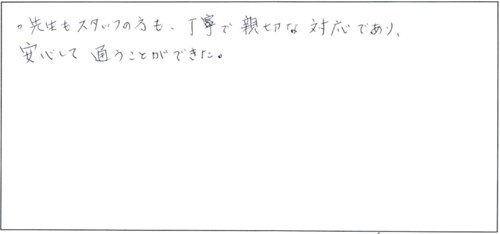 。先生もスタッフの方も、丁寧で親切な対応であり、
安心して通うことができた。